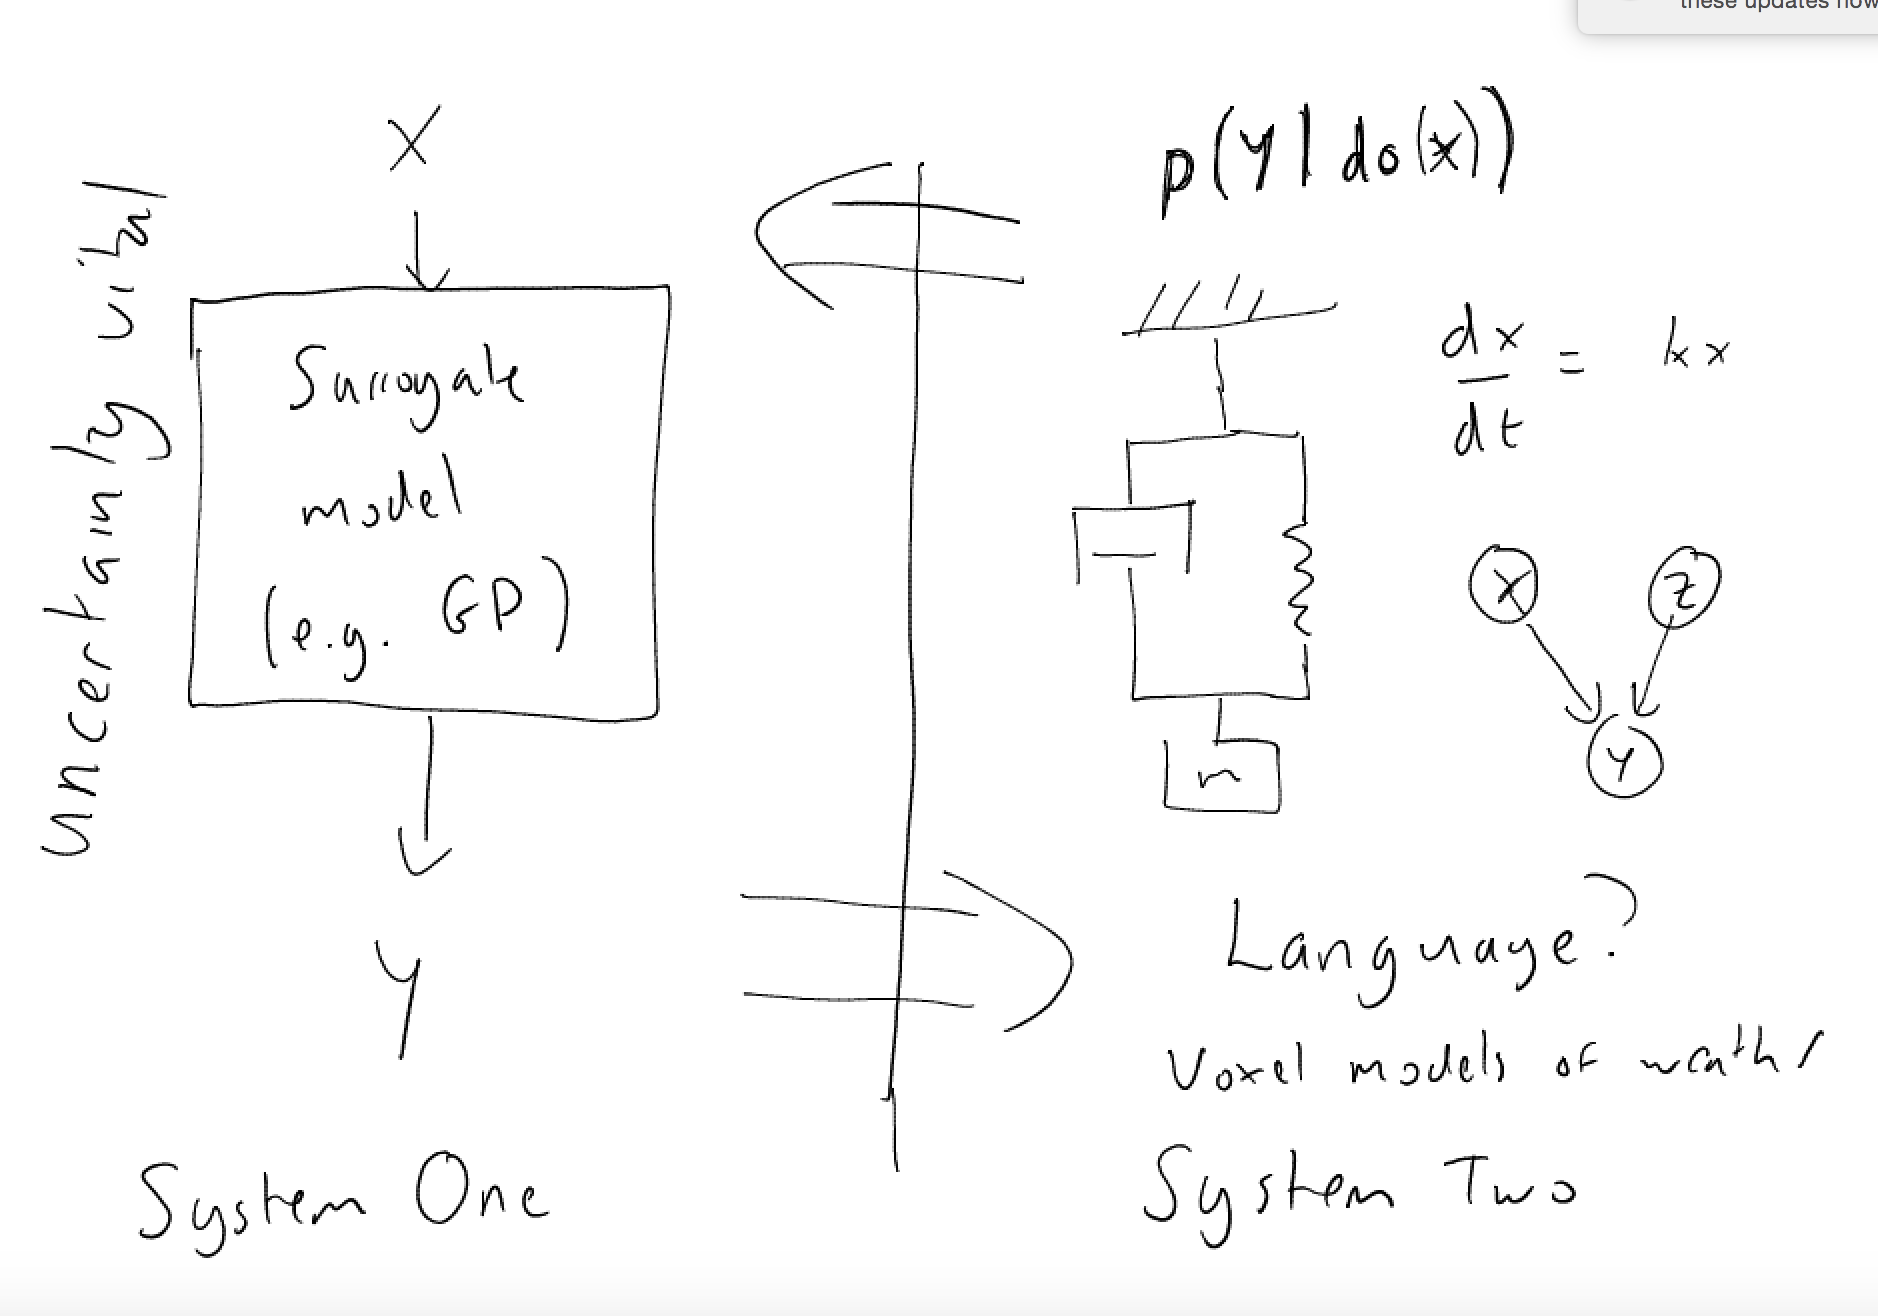 these updates now
x
Uncertainly vital
Surrogate
model
(e.g. GP)
y
System One
p(y|do(x))
dx
dt
= kx
m
x
z
y
Language?
Voxel models of weather
System Two